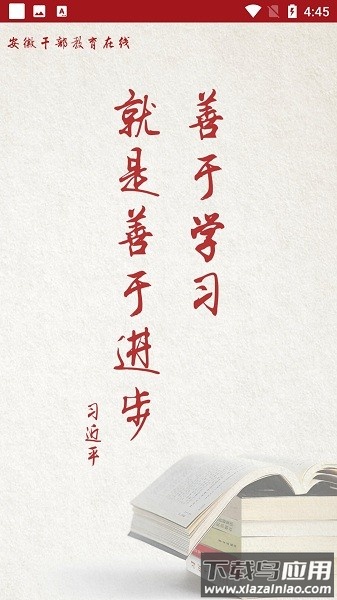 4:45
安徽干部教育在线
善于学习
就是善于进步
习近平
下载鸟应用
www.xiazainiao.com